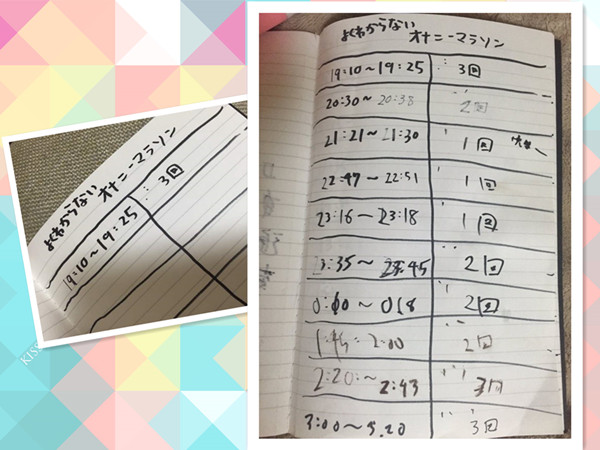 よくわからない
オナニーマラソン
19:10〜19:25 : 3回
よくわからない
オナニーマラソン
19:10〜19:25 : 3回
20:30〜20:38 : 2回
21:21〜21:30 1回
22:47〜22:51 1回
23:16〜23:18 1回
23:35〜23:45 2回
0:10〜018 2回
1:45〜2:00 2回
2:20:〜2:43 3回
3:00〜5.20 3回
KISS